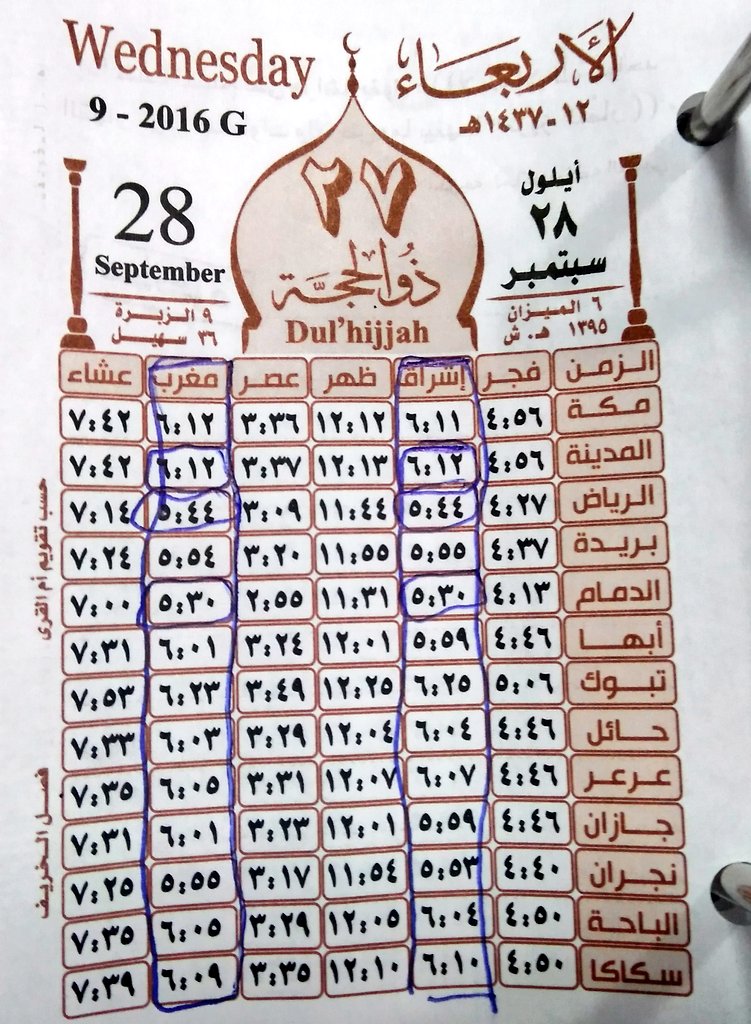 Wednesday الأربعاء
9 - 2016 G ١٢-١٤٣٧هـ
٢٧
28 أيلول
٢٨
September سبتمبر
ذو الحجة
Dul'hijjah
٩ الزبرة ٦ الميزان
٣٦ سهيل ١٣٩٥ هـ. ش
الزمن فجر إشراق ظهر عصر مغرب عشاء
مكة ٤:٥٦ ٦:١١ ١٢:١٢ ٣:٣٦ ٦:١٢ ٧:٤٢
المدينة ٤:٥٦ ٦:١٢ ١٢:١٣ ٣:٣٧ ٦:١٢ ٧:٤٢
الرياض ٤:٢٧ ٥:٤٤ ١١:٤٤ ٣:٠٩ ٥:٤٤ ٧:١٤
بريدة ٤:٣٧ ٥:٥٥ ١١:٥٥ ٣:٢٠ ٥:٥٤ ٧:٢٤
الدمام ٤:١٣ ٥:٣٠ ١١:٣١ ٢:٥٥ ٥:٣٠ ٧:٠٠
أبها ٤:٤٦ ٥:٥٩ ١٢:٠١ ٣:٢٤ ٦:٠١ ٧:٣١
تبوك ٥:٠٦ ٦:٢٥ ١٢:٢٥ ٣:٤٩ ٦:٢٣ ٧:٥٣
حائل ٤:٤٦ ٦:٠٤ ١٢:٠٤ ٣:٢٩ ٦:٠٣ ٧:٣٣
عرعر ٤:٤٦ ٦:٠٧ ١٢:٠٧ ٣:٣١ ٦:٠٥ ٧:٣٥
جازان ٤:٤٦ ٥:٥٩ ١٢:٠١ ٣:٢٣ ٦:٠١ ٧:٣١
نجران ٤:٤٠ ٥:٥٣ ١١:٥٤ ٣:١٧ ٥:٥٥ ٧:٢٥
الباحة ٤:٥٠ ٦:٠٤ ١٢:٠٥ ٣:٢٩ ٦:٠٥ ٧:٣٥
سكاكا ٤:٥٠ ٦:١٠ ١٢:١٠ ٣:٣٥ ٦:٠٩ ٧:٣٩
حسب تقويم أم القرى
فصل الخريف